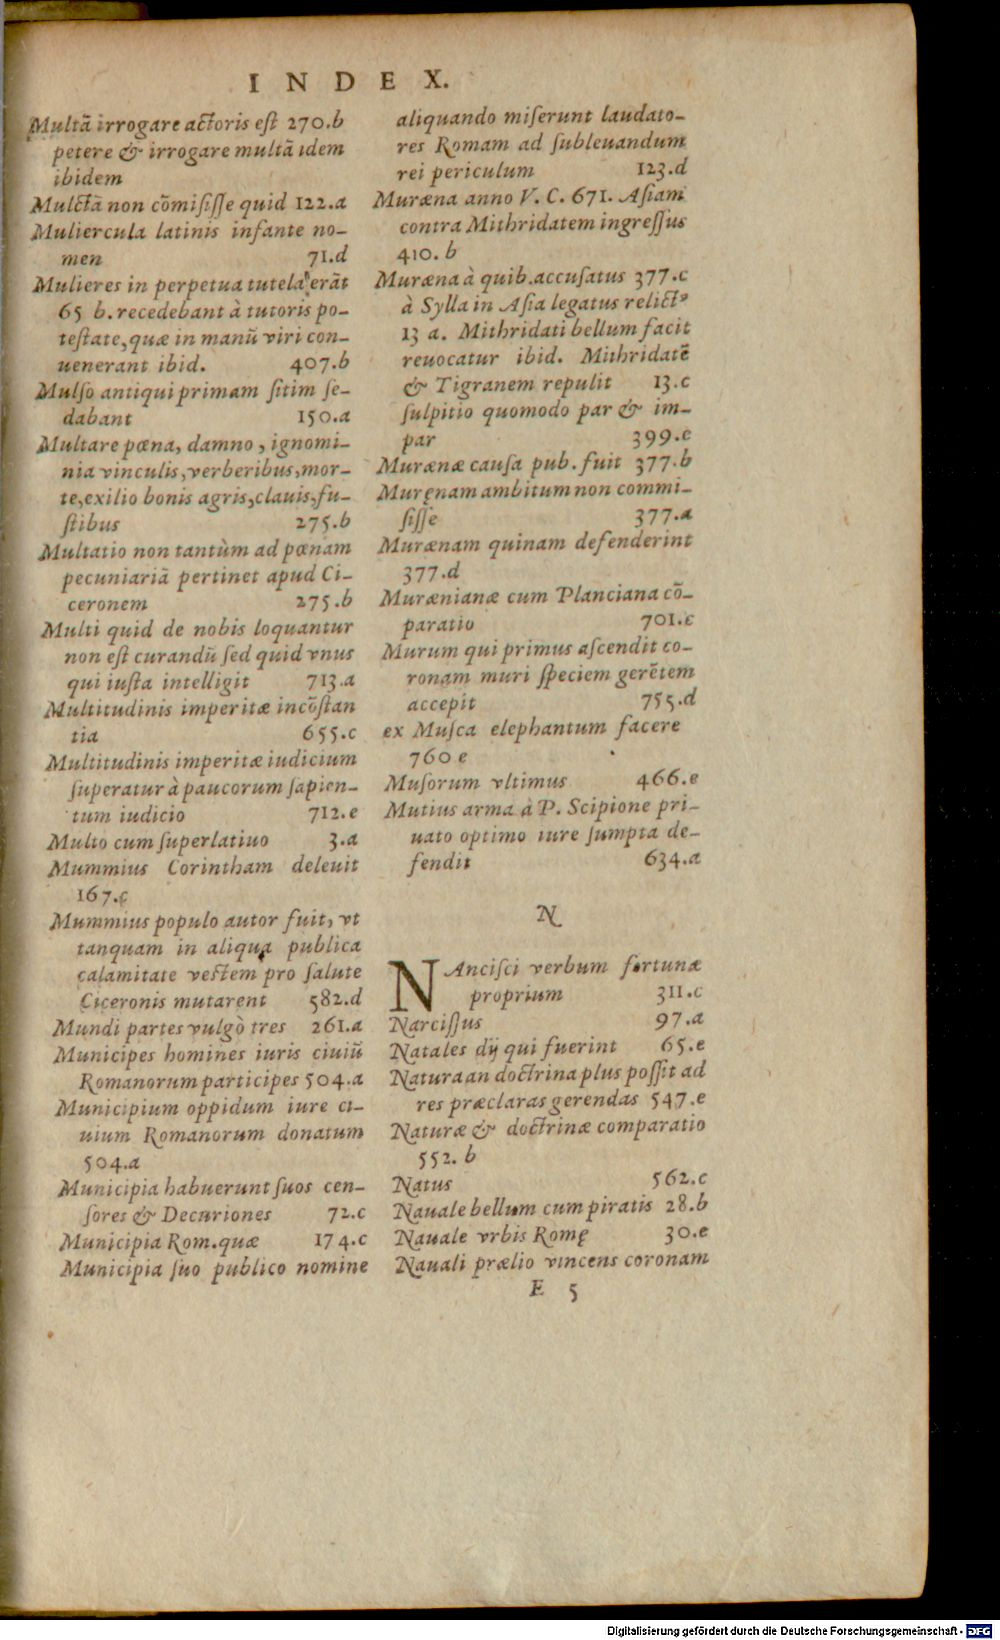 INDEX.
Multã irrogare actoris eſt 270.b
petere & irrogare multã idem
ibidem
Mulctã non cõmiſiſſe quid 122.a
Muliercula latinis infante no-
men 71.d
Mulieres in perpetua tutela erãt
65 b. recedebant à tutoris po-
teſtate, quæ in manũ viri con-
uenerant ibid. 407.b
Mulſo antiqui primam ſitim ſe-
dabant 150.a
Multare pœna, damno, ignomi-
nia vinculis, verberibus, mor-
te, exilio bonis agris, clauis, fu-
ſtibus 275.b
Multatio non tantùm ad pœnam
pecuniariã pertinet apud Ci-
ceronem 275.b
Multi quid de nobis loquantur
non eſt curandũ ſed quid vnus
qui iuſta intelligit 713.a
Multitudinis imperitæ incõſtan
tia 655.c
Multitudinis imperitæ iudicium
ſuperatur à paucorum ſapien-
tum iudicio 712.e
Multo cum ſuperlatiuo 3.a
Mummius Corintham deleuit
167.c
Mummius populo autor fuit, vt
tanquam in aliqua publica
calamitate veſtem pro ſalute
Ciceronis mutarent 582.d
Mundi partes vulgò tres 261.a
Municipes homines iuris ciuiũ
Romanorum participes 504.a
Municipium oppidum iure ci-
uium Romanorum donatum
504.a
Municipia habuerunt ſuos cen-
ſores & Decuriones 72.c
Municipia Rom. quæ 174.c
Municipia ſuo publico nomine
aliquando miſerunt laudato-
res Romam ad ſubleuandum
rei periculum 123.d
Muræna anno V. C. 671. Aſiam
contra Mithridatem ingreſſus
410. b
Muræna à quib. accuſatus 377.c
à Sylla in Aſia legatus relictꝰ
13 a. Mithridati bellum facit
reuocatur ibid. Mithridatẽ
& Tigranem repulit 13.c
ſulpitio quomodo par & im-
par 399.e
Murænæ cauſa pub. fuit 377.b
Muręnam ambitum non commi-
ſiſſe 377.a
Murænam quinam defenderint
377.d
Murænianæ cum Planciana cõ-
paratio 701.c
Murum qui primus aſcendit co-
ronam muri ſpeciem gerẽtem
accepit 755.d
ex Muſca elephantum facere
760 e
Muſorum vltimus 466.e
Mutius arma à P. Scipione pri-
uato optimo iure ſumpta de-
fendit 634.a
N
NAnciſci verbum fortunæ
proprium 311.c
Narciſſus 97.a
Natales dij qui fuerint 65.e
Natura an doctrina plus poſſit ad
res præclaras gerendas 547.e
Naturæ & doctrinæ comparatio
552. b
Natus 562.c
Nauale bellum cum piratis 28.b
Nauale vrbis Romę 30.e
Nauali prælio vincens coronam
E 5
Digitalisierung gefördert durch die Deutsche Forschungsgemeinschaft - DFG